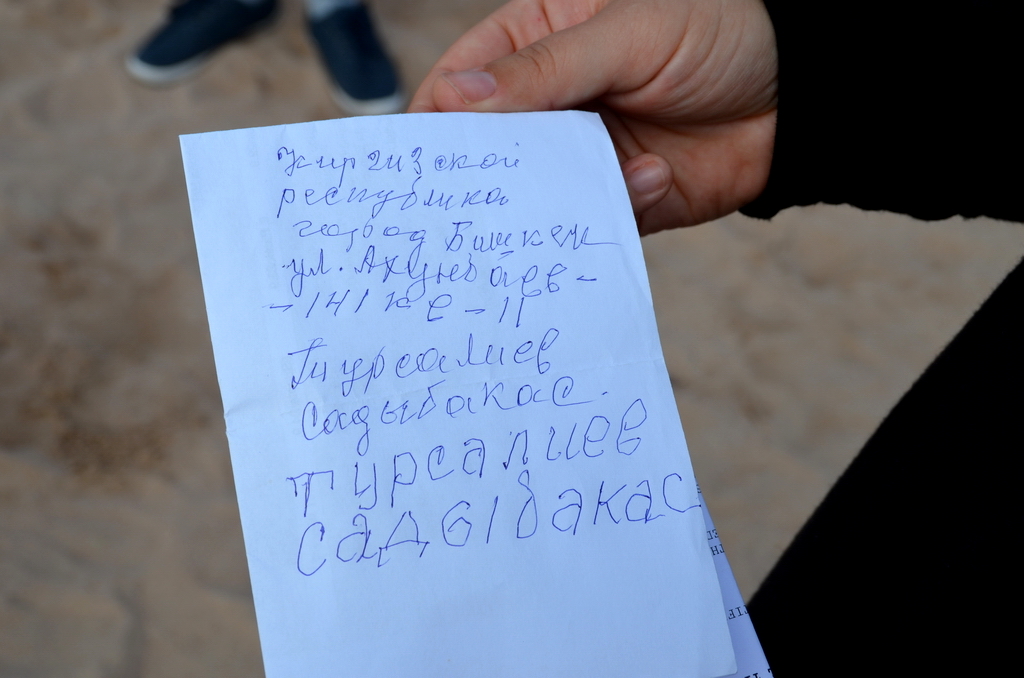 Киргизской
республика
город Бишкек
ул. Ахунбаев-
-141 кв-11
Турсалиев
Садыбакас.
Турсалиев
Садыбакас